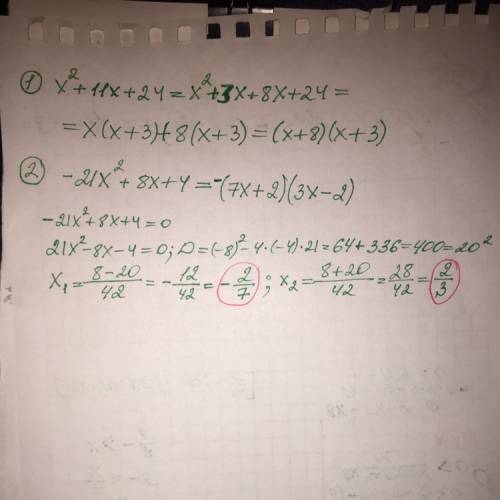 ① x²+11x+24=x²+3x+8x+24=
=x(x+3)+8(x+3)=(x+8)(x+3)
② -21x²+8x+4=-(7x+2)(3x-2)
-21x²+8x+4=0
21x²-8x-4=0; D=(-8)²-4·(-4)·21=64+336=400=20²
x₁=8-20/42=-12/42=-2/7; x₂=8+20/42=28/42=2/3